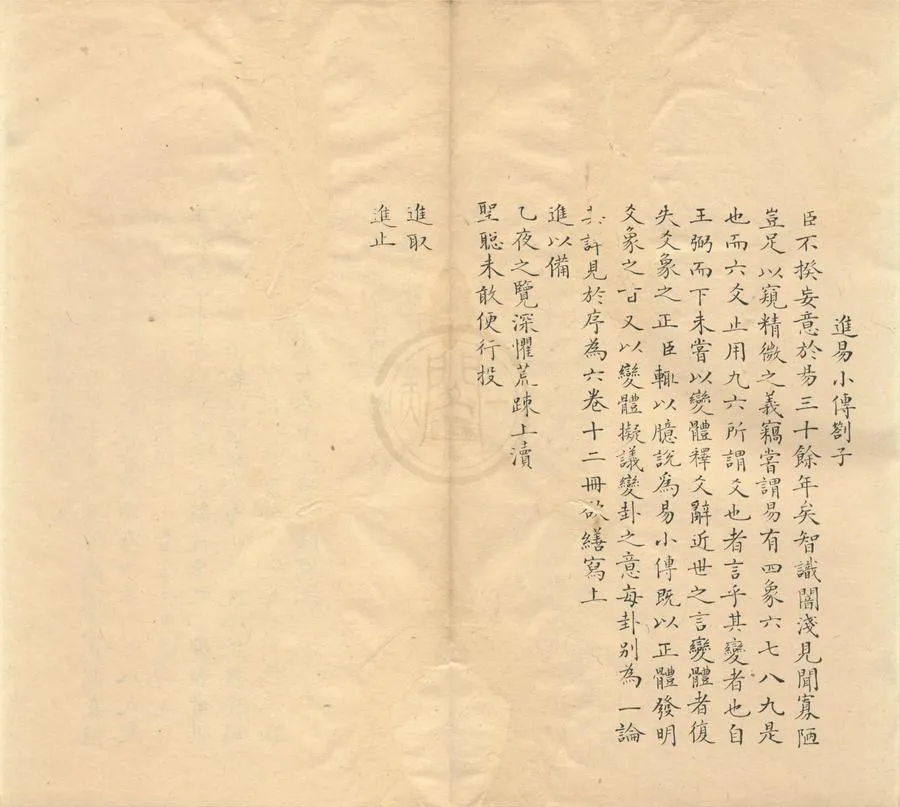 進易小傳劄子
臣不揆妄意於易三十餘年矣智識闇淺見聞寡陋
豈足以窺精微之義竊嘗謂易有四象六七八九是
也而六爻止用九六所謂爻也者言乎其變者也自
王弼而下未嘗以變體釋爻辭近世之言變體者復
失爻象之正臣輒以臆說爲易小傳既以正體發明
爻象之旨又以變體擬議變卦之意每卦別為一論
其詳見於序為六卷十二冊欲繕寫上
進以備
乙夜之覽深懼荒踈上瀆
聖聡未敢便行投
進取
進止